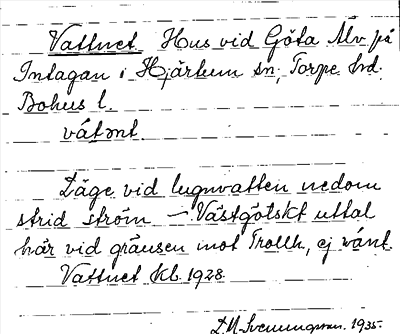 Vattnet Hus vid Göta Älv på
Intagan i Hjärtum sn, Torpe hd.
Bohus l.
vátənt.
Läge vid lugnvatten nedom
strid ström — Västgötskt uttal
här vid gränsen mot Trollh, ej vánt.
Vattnet Kb. 1928.
Svenungsson. 1935.